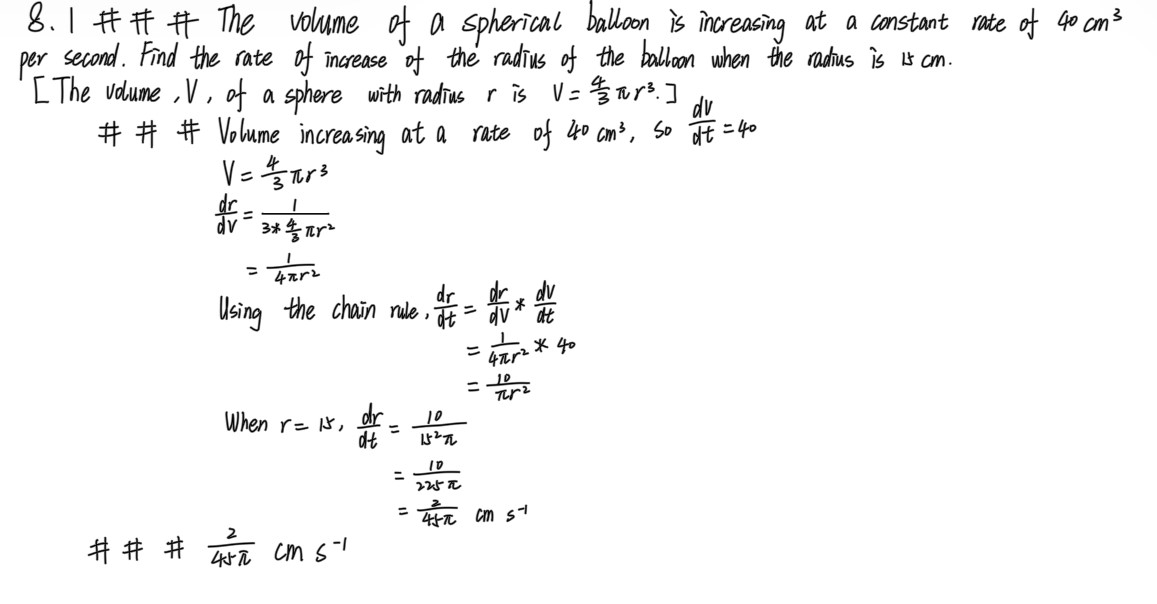 8.1 # # # The volume of a spherical balloon is increasing at a constant rate of 40 cm³
per second. Find the rate of increase of the radius of the balloon when the radius is 15 cm.
[The volume, V, of a sphere with radius r is V = 4/3 πr³.]
# # # Volume increasing at a rate of 40 cm³, so dV/dt = 40
V = 4/3 πr³
dr/dV = 1/(3*4/3 πr²)
= 1/(4πr²)
Using the chain rule, dr/dt = dr/dV * dV/dt
= 1/(4πr²) * 40
= 10/(πr²)
When r = 15, dr/dt = 10/(15²π)
= 10/(225π)
= 2/(45π) cm s⁻¹
# # # 2/(45π) cm s⁻¹